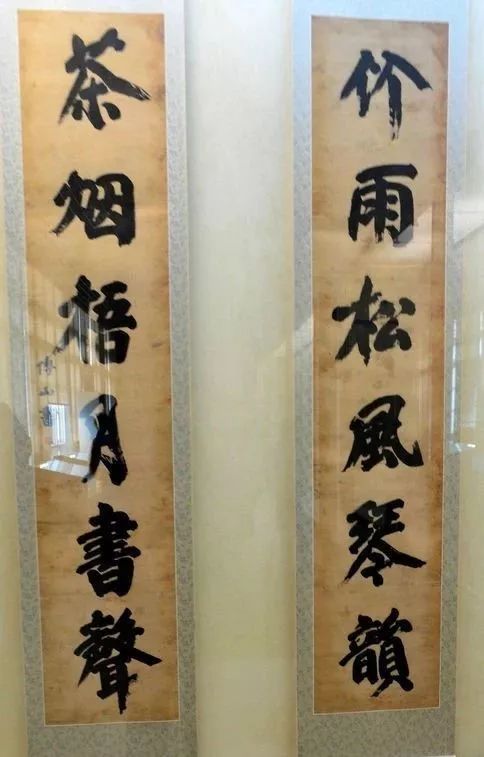 竹雨松風琴韻
茶烟梧月書聲
傅山